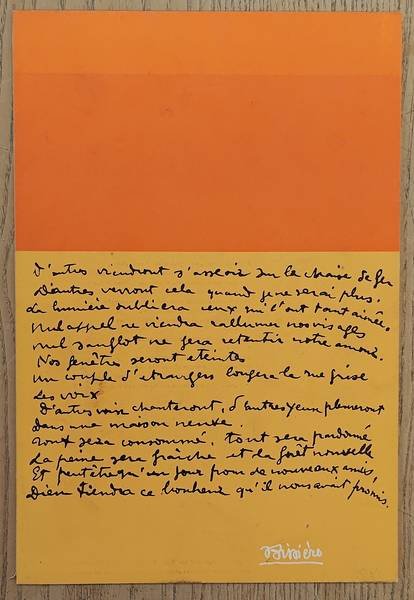 D'autres viendront s'asseoir sur la chaise de fer
D'autres verront cela quand je ne serai plus,
La lumière oubliera ceux qui l'ont tant aimée,
Nul appel ne viendra rallumer nos visages
Nul sanglot ne fera retentir notre amour.
Nos fenêtres seront éteintes
Un couple d'étrangers longera la rue grise
Les voix
D'autres voix chanteront, d'autres yeux pleureront
Dans une maison neuve.
Tout sera consommé, tout sera pardonné
La peine sera fraîche et la forêt nouvelle
Et peut-être qu'un jour pour de nouveaux amis,
Dieu tiendra ce bonheur qu'il nous avait promis.
Bissière